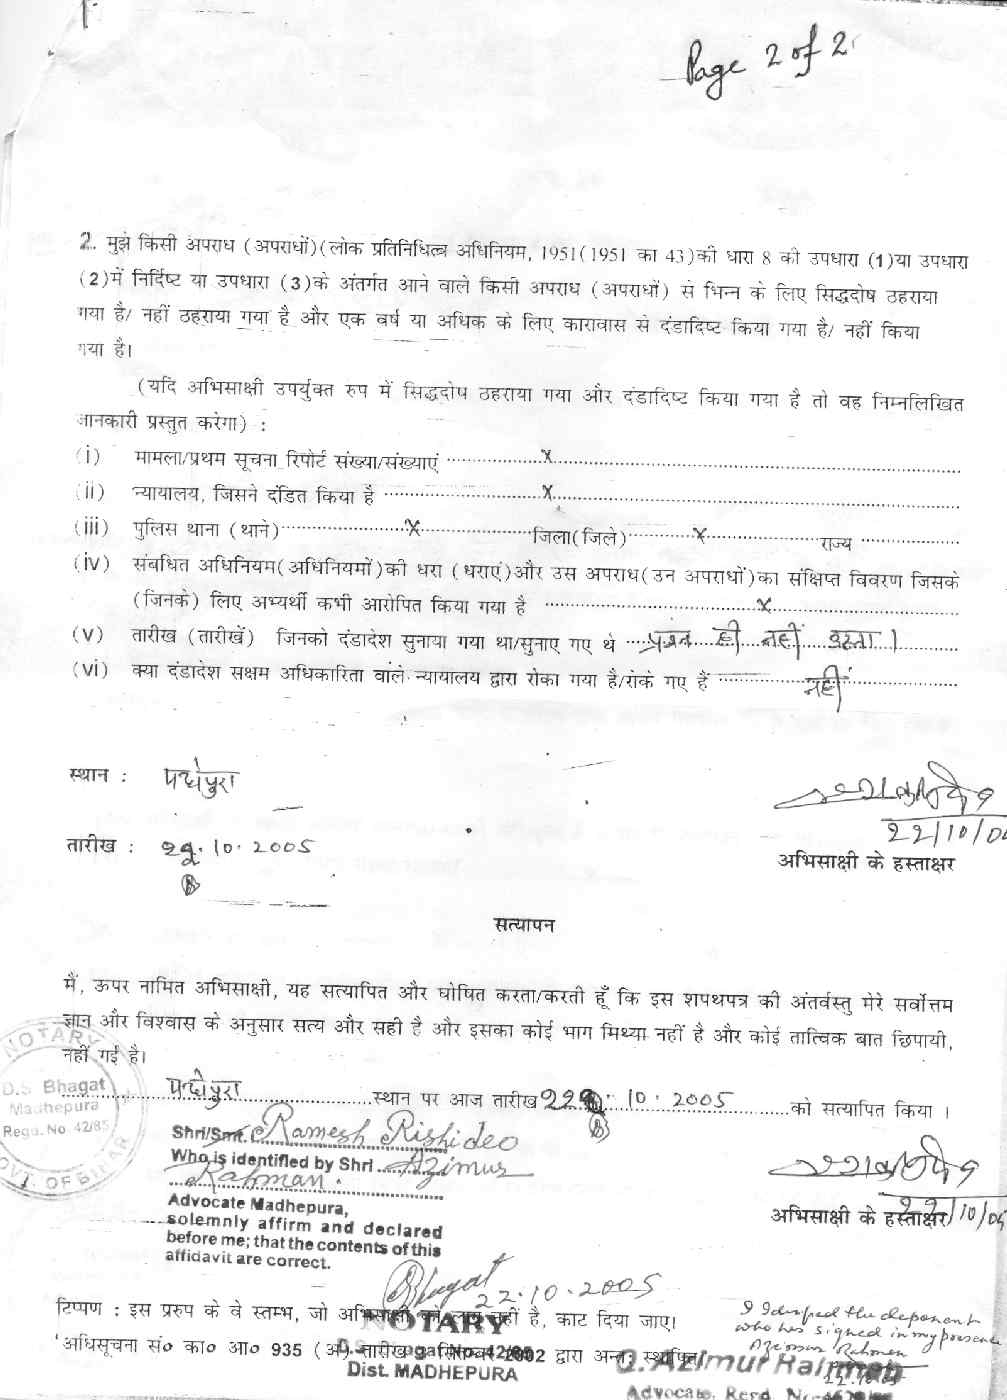 Page 2 of 2
2. मुझे किसी अपराध (अपराधों)(लोक प्रतिनिधित्व अधिनियम, 1951(1951 का 43)की धारा 8 की उपधारा (1)या उपधारा
(2)में निर्दिष्ट या उपधारा (3)के अंतर्गत आने वाले किसी अपराध (अपराधों) से भिन्न के लिए सिद्धदोष ठहराया
गया है/ नहीं ठहराया गया है और एक वर्ष या अधिक के लिए कारावास से दंडादिष्ट किया गया है/ नहीं किया
गया है।
(यदि अभिसाक्षी उपर्युक्त रुप में सिद्धदोष ठहराया गया और दंडादिष्ट किया गया है तो वह निम्नलिखित
जानकारी प्रस्तुत करेगा) :
(i) मामला/प्रथम सूचना रिपोर्ट संख्या/संख्याएं ..........x..........
(ii) न्यायालय, जिसने दंडित किया है ..........x..........
(iii) पुलिस थाना (थाने)..........x..........जिला(जिले)..........x..........राज्य ..........
(iv) संबधित अधिनियम(अधिनियमों)की धरा (धराएं)और उस अपराध(उन अपराधों)का संक्षिप्त विवरण जिसके
(जिनके) लिए अभ्यर्थी कभी आरोपित किया गया है ..........x..........
(v) तारीख (तारीखें) जिनको दंडादेश सुनाया गया था/सुनाए गए थे ....प्रश्न ही नहीं उठता।....
(vi) क्या दंडादेश सक्षम अधिकारिता वाले न्यायालय द्वारा रोका गया है/रोके गए हैं ..........नहीं..........
स्थान : मधेपुरा
22/10/05
तारीख : 22.10.2005
अभिसाक्षी के हस्ताक्षर
सत्यापन
मैं, ऊपर नामित अभिसाक्षी, यह सत्यापित और घोषित करता/करती हूँ कि इस शपथपत्र की अंतर्वस्तु मेरे सर्वोत्तम
ज्ञान और विश्वास के अनुसार सत्य और सही है और इसका कोई भाग मिथ्या नहीं है और कोई तात्विक बात छिपायी,
नहीं गई है।
मधेपुरा..........स्थान पर आज तारीख 22.10.2005..........को सत्यापित किया।
NOTARY
D.S. Bhagat
Madhepura
Regd. No. 42/85
GOVT. OF BIHAR
Shri/Smt. Ramesh Rishideo
Who is identified by Shri Azimur
Rahman.
Advocate Madhepura,
solemnly affirm and declared
before me; that the contents of this
affidavit are correct.
22/10/05
अभिसाक्षी के हस्ताक्षर
Bhagat
22.10.2005
टिप्पण : इस प्ररुप के वे स्तम्भ, जो अभिसाक्षी को लागू नहीं है, काट दिया जाए।
NOTARY
अधिसूचना सं० का० आ० 935 (अ) तारीख 3 सितम्बर 2002 द्वारा अन्तः स्थापित
Dist. MADHEPURA
I Identified the deponent
who has signed in my presence
Azimur Rahman
22.10.05
Azimur Rahman
Advocate, Regd. No.